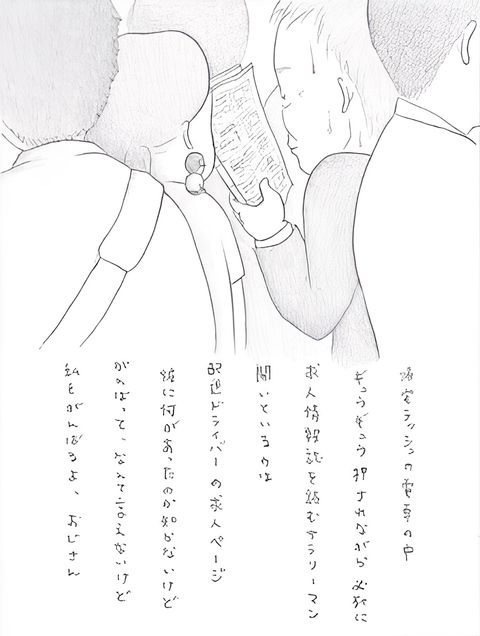 帰宅ラッシュの電車の中
ぎゅうぎゅう押されながら必死に
求人情報誌を読むサラリーマン
開いているのは
配送ドライバーの求人ページ
彼に何があったのか知らないけど
がんばって、なんて言えないけど
私もがんばるよ、おじさん